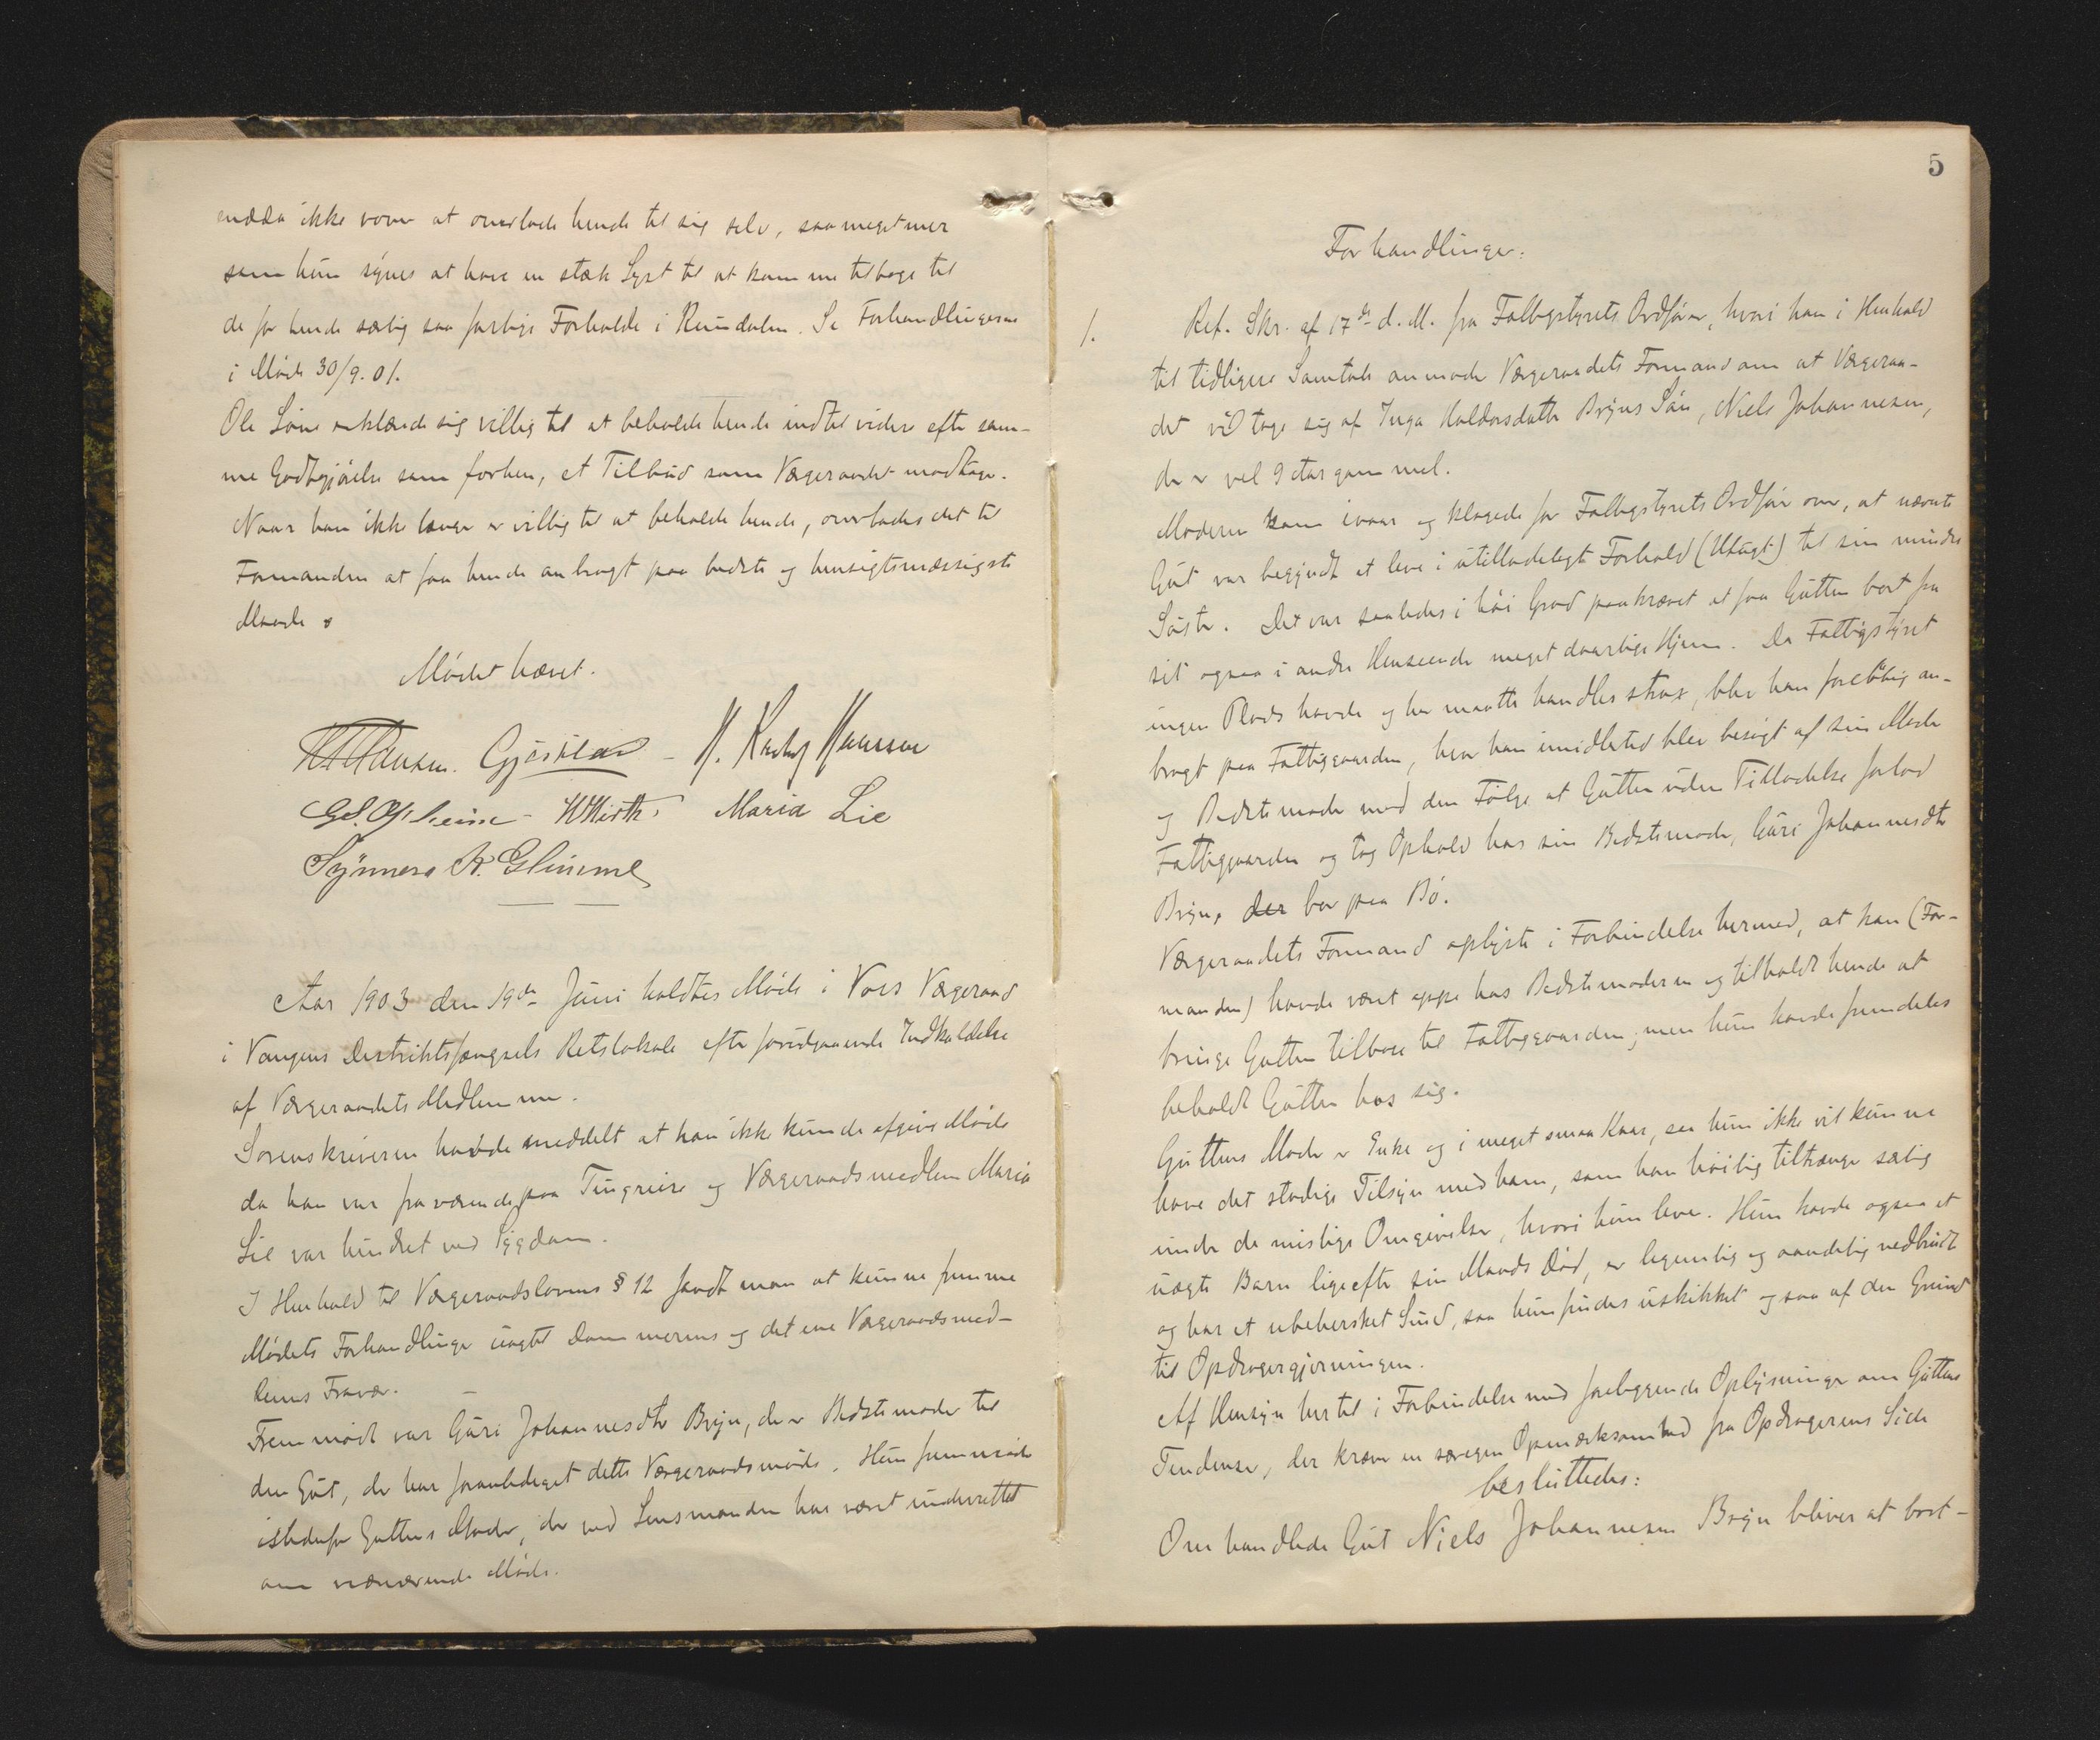 endda ikke vover at overlade hende til sig selv, saameget mer
som hun synes at have en stærk Lyst til at komme tilbage til
de for hende særlig saa farlige Forholde i Rundalen. Se Forhandlingerne
i Møde 30/9.01.
Ole Lône erklærede sig villig til at beholde hende indtil videre efter sam-
me Godtgjørelse som forhen, et Tilbud som Værgeraadet modtager.
Naar han ikke længer er villig til at beholde hende, overlades det til
Formanden at faa hende anbragt paa bedste og hensigtsmæssigste
Maade.
Mødet hævet.
Gjerskland - H. Hansen
Maria Lie
Synneva K. Glimme
Aar 1903 den 19de Juni holdtes Møde i Voss Værgeraad
i Vangens Distriktsfængsels Retslokale efter forudgaaende Indkaldelse
af Værgeraadets Medlemmer.
Sorenskriveren havde meddelt at han ikke kunde afgive Møde
da han var fraværende paa Tingreise og Værgeraadsmedlem Maria
Lie var hindret ved Sygdom.
I Henhold til Værgeraadslovens § 12 fandt man at kunne fremme
Mødets Forhandlinger uagtet Dommerens og det ene Værgeraadsmed-
lems Fravær.
Fremmødt var Guri Johannesdtr Bryn, der er Bedstemoder til
den Gut, der har foranlediget dette Værgeraadsmøde. Hun fremmøder
istedenfor Guttens Moder, der ved Lensmanden har været underrettet
om nærværende Møde.
5
Forhandlinger:
1. Ref. Skr. af 17de d. M. fra Fattigstyrets Ordfører, hvori han i Henhold
til tidligere Samtale anmoder Værgeraadets Formand om at Værgeraa-
det vil tage sig af Inga Haldorsdatter Bryns Søn, Niels Johannesen,
der er vel 9 Aar gammel.
Moderen kom ivaar og klagede for Fattigstyrets Ordfører over, at nævnte
Gut var begyndt at leve i utilladeligt Forhold (Utugt) til sin mindre
Søster. Det var saaledes i høi Grad paakrævet at faa Gutten bort fra
sit ogsaa i andre Henseender meget daarlige Hjem. Da Fattigstyret
ingen Plads havde og her maatte handles strax, blev han foreløbig an-
bragt paa Fattiggaarden, hvor han imidlertid blev besøgt af sin Moder
og Bedstemoder med den Følge at Gutten uden Tilladelse forlod
Fattiggaarden og tog Ophold hos sin Bedstemoder, Guri Johannesdtr
Bryn, der bor paa Bø.
Værgeraadets Formand oplyste i Forbindelse hermed, at han (For-
manden) havde været oppe hos Bedstemoderen og tilholdt hende at
bringe Gutten tilbage til Fattiggaarden, men hun havde fremdeles
beholdt Gutten hos sig.
Guttens Moder er Enke og i meget smaa Kaar, saa hun ikke vil kunne
have det stadige Tilsyn med ham, som han høilig tiltrænger særlig
under de mislige Omgivelser, hvori hun lever. Hun havde ogsaa et
uægte Barn lige efter sin Mands Død, er legemlig og aandelig nedbrudt
og har et ubehersket Sind, saa hun findes uskikket ogsaa af den Grund
til Opdragergjerningen.
Af Hensyn hertil i Forbindelse med foreliggende Oplysninger om Guttens
Tendenser, der kræver en særegen Opmærksomhed fra Opdragerens Side
besluttedes:
Omhandlede Gut Niels Johannesen Bryn bliver at bort-